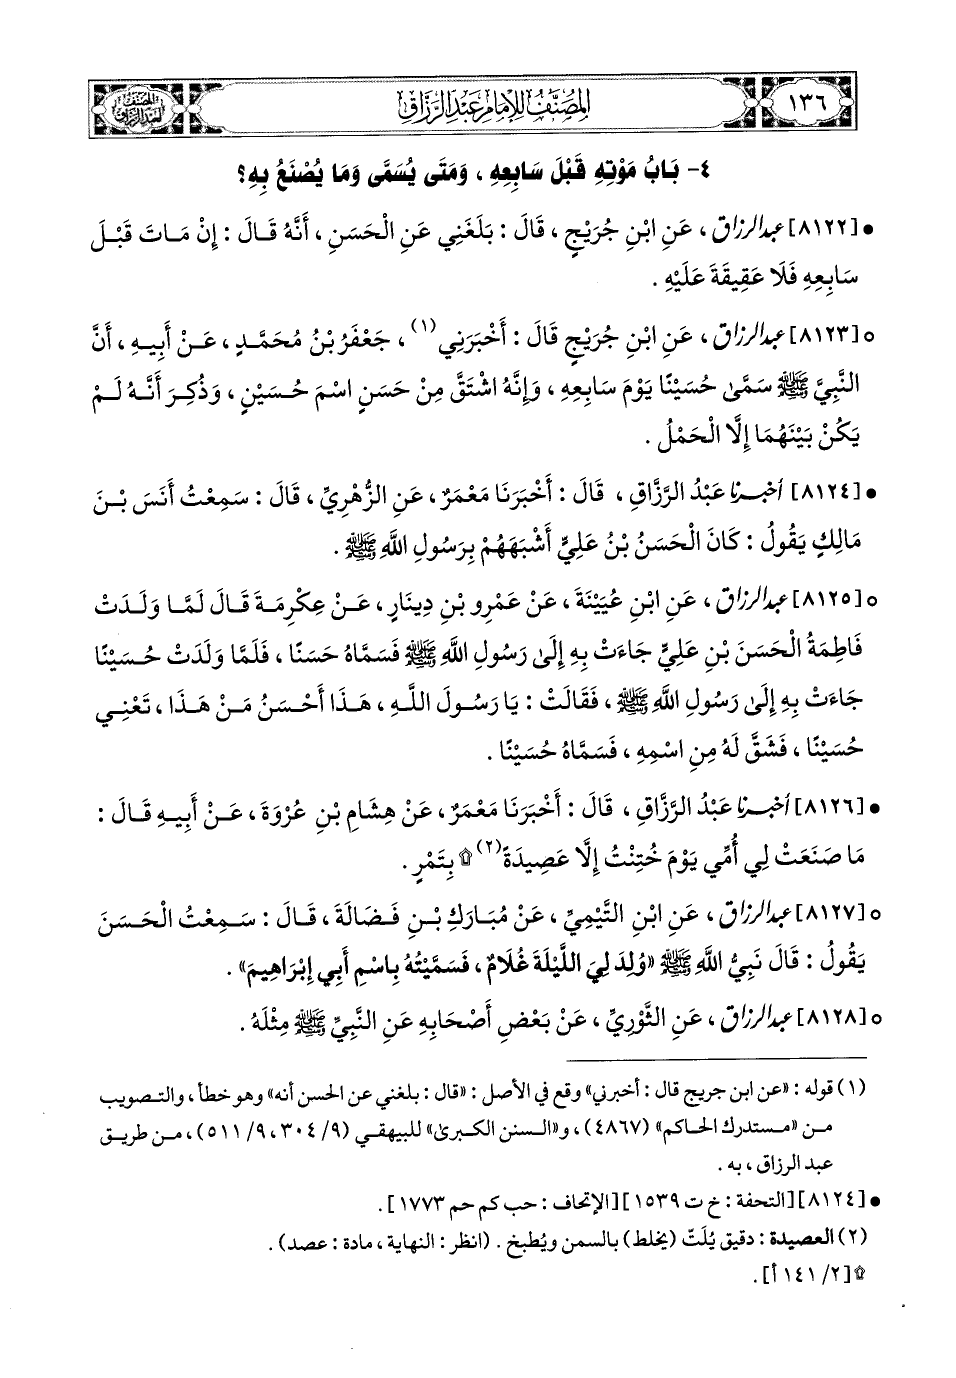 ١٣٦
المصنف للإمام عبد الرزاق
المصنف لعبد الرزاق
٤- بَابُ مَوْتِهِ قَبْلَ سَابِعِهِ ، وَمَتَى يُسَمَّى وَمَا يُصْنَعُ بِهِ؟
• [٨١٢٢] عبد الرزاق ، عَنِ ابْنِ جُرَيْجٍ ، قَالَ : بَلَغَنِي عَنِ الْحَسَنِ ، أَنَّهُ قَالَ : إِنْ مَاتَ قَبْلَ
سَابِعِهِ فَلَا عَقِيقَةَ عَلَيْهِ .
○ [٨١٢٣] عبد الرزاق ، عَنِ ابْنِ جُرَيْجٍ قَالَ : أَخْبَرَنِي (١) ، جَعْفَرُ بْنُ مُحَمَّدٍ ، عَنْ أَبِيهِ ، أَنَّ
النَّبِيَّ ﷺ سَمَّىٰ حُسَيْنًا يَوْمَ سَابِعِهِ ، وَإِنَّهُ اشْتَقَّ مِنْ حَسَنٍ اسْمَ حُسَيْنٍ ، وَذُكِرَ أَنَّهُ لَمْ
يَكُنْ بَيْنَهُمَا إِلَّا الْحَمْلُ .
• [٨١٢٤] أخبرنا عَبْدُ الرَّزَّاقِ ، قَالَ : أَخْبَرَنَا مَعْمَرٌ ، عَنِ الزُّهْرِيِّ ، قَالَ : سَمِعْتُ أَنَسَ بْنَ
مَالِكٍ يَقُولُ : كَانَ الْحَسَنُ بْنُ عَلِيٍّ أَشْبَهَهُمْ بِرَسُولِ اللَّهِ ﷺ .
○ [٨١٢٥] عبد الرزاق ، عَنِ ابْنِ عُيَيْنَةَ ، عَنْ عَمْرِو بْنِ دِينَارٍ ، عَنْ عِكْرِمَةَ قَالَ لَمَّا وَلَدَتْ
فَاطِمَةُ الْحَسَنَ بْنِ عَلِيٍّ جَاءَتْ بِهِ إِلَىٰ رَسُولِ اللَّهِ ﷺ فَسَمَّاهُ حَسَنًا ، فَلَمَّا وَلَدَتْ حُسَيْنًا
جَاءَتْ بِهِ إِلَىٰ رَسُولِ اللَّهِ ﷺ ، فَقَالَتْ : يَا رَسُولَ اللَّهِ ، هَذَا أَحْسَنُ مَنْ هَذَا ، تَعْنِي
حُسَيْنًا ، فَشَقَّ لَهُ مِنِ اسْمِهِ ، فَسَمَّاهُ حُسَيْنًا .
• [٨١٢٦] أخبرنا عَبْدُ الرَّزَّاقِ ، قَالَ : أَخْبَرَنَا مَعْمَرٌ ، عَنْ هِشَامِ بْنِ عُرْوَةَ ، عَنْ أَبِيهِ قَالَ :
مَا صَنَعَتْ لِي أُمِّي يَوْمَ خُتِنْتُ إِلَّا عَصِيدَةً (٢) ۩ بِتَمْرٍ .
○ [٨١٢٧] عبد الرزاق ، عَنِ ابْنِ التَّيْمِيِّ ، عَنْ مُبَارَكِ بْنِ فَضَالَةَ ، قَالَ : سَمِعْتُ الْحَسَنَ
يَقُولُ : قَالَ نَبِيُّ اللَّهِ ﷺ «وُلِدَ لِيَ اللَّيْلَةَ غُلَامٌ ، فَسَمَّيْتُهُ بِاسْمِ أَبِي إِبْرَاهِيمَ» .
○ [٨١٢٨] عبد الرزاق ، عَنِ الثَّوْرِيِّ ، عَنْ بَعْضِ أَصْحَابِهِ عَنِ النَّبِيِّ ﷺ مِثْلَهُ .
(١) قوله : «عن ابن جريج قال : أخبرني» وقع في الأصل : «قال : بلغني عن الحسن أنه» وهو خطأ ، والتصويب
من «مستدرك الحاكم» (٤٨٦٧) ، و«السنن الكبرىٰ» للبيهقي (٩/ ٣٠٤، ٩/ ٥١١) ، من طريق
عبد الرزاق ، به .
• [٨١٢٤] [التحفة : خ ت ١٥٣٩] [الإتحاف : حب كم حم ١٧٧٣] .
(٢) العصيدة : دقيق يُلَتّ (يخلط) بالسمن ويُطبخ . (انظر : النهاية ، مادة : عصد) .
۩ [٢/ ١٤١ أ] .